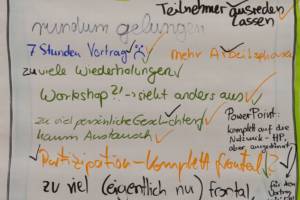 Teilnehmer ausreden
lassen
rundum gelungen
7 Stunden Vortrag
mehr Arbeitsphasen
zu viele Wiederholungen
Workshop?! → sieht anders aus
zu viel persönliche Geschichten
kaum Austausch
PowerPoint:
komplett auf die
Netzwerk-HP,
aber
Partizipation - komplett frontal?
zu viel (eigentlich nur) frontal,